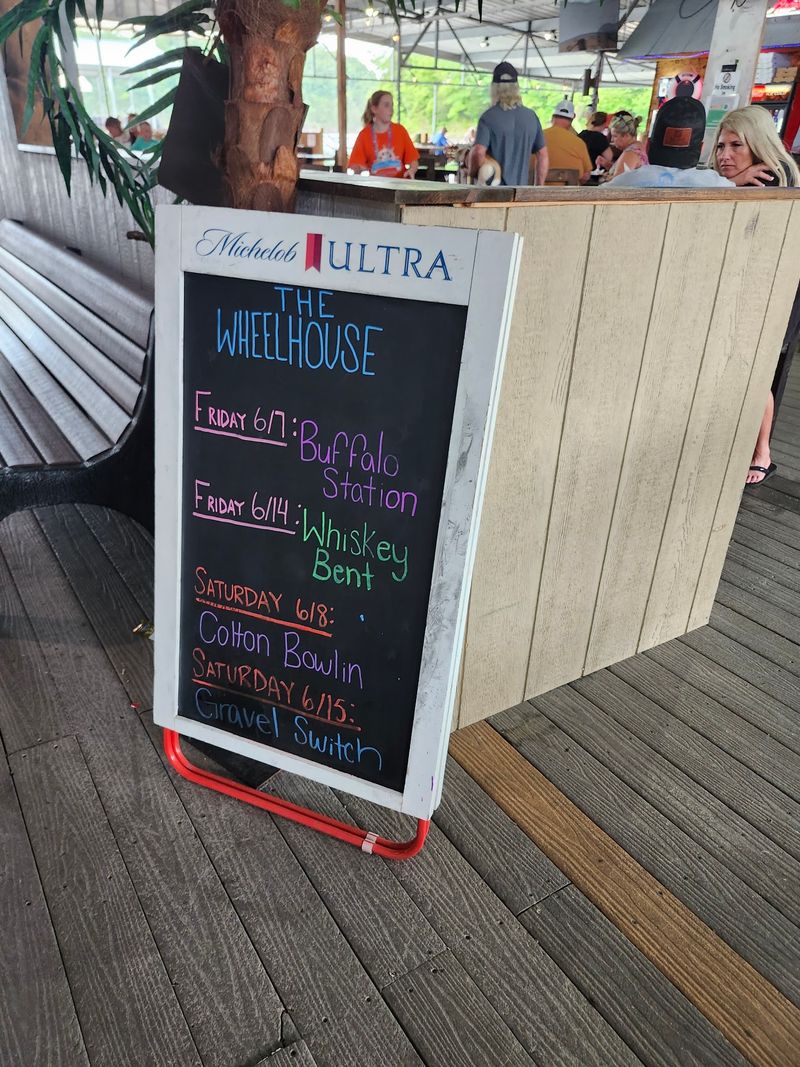 Michelob ULTRA
THE
WHEELHOUSE
FRIDAY 6/7:
Buffalo
Station
FRIDAY 6/14:
Whiskey
Bent
SATURDAY 6/8:
Colton Bowlin
SATURDAY 6/15:
Gravel Switch
No Smoking